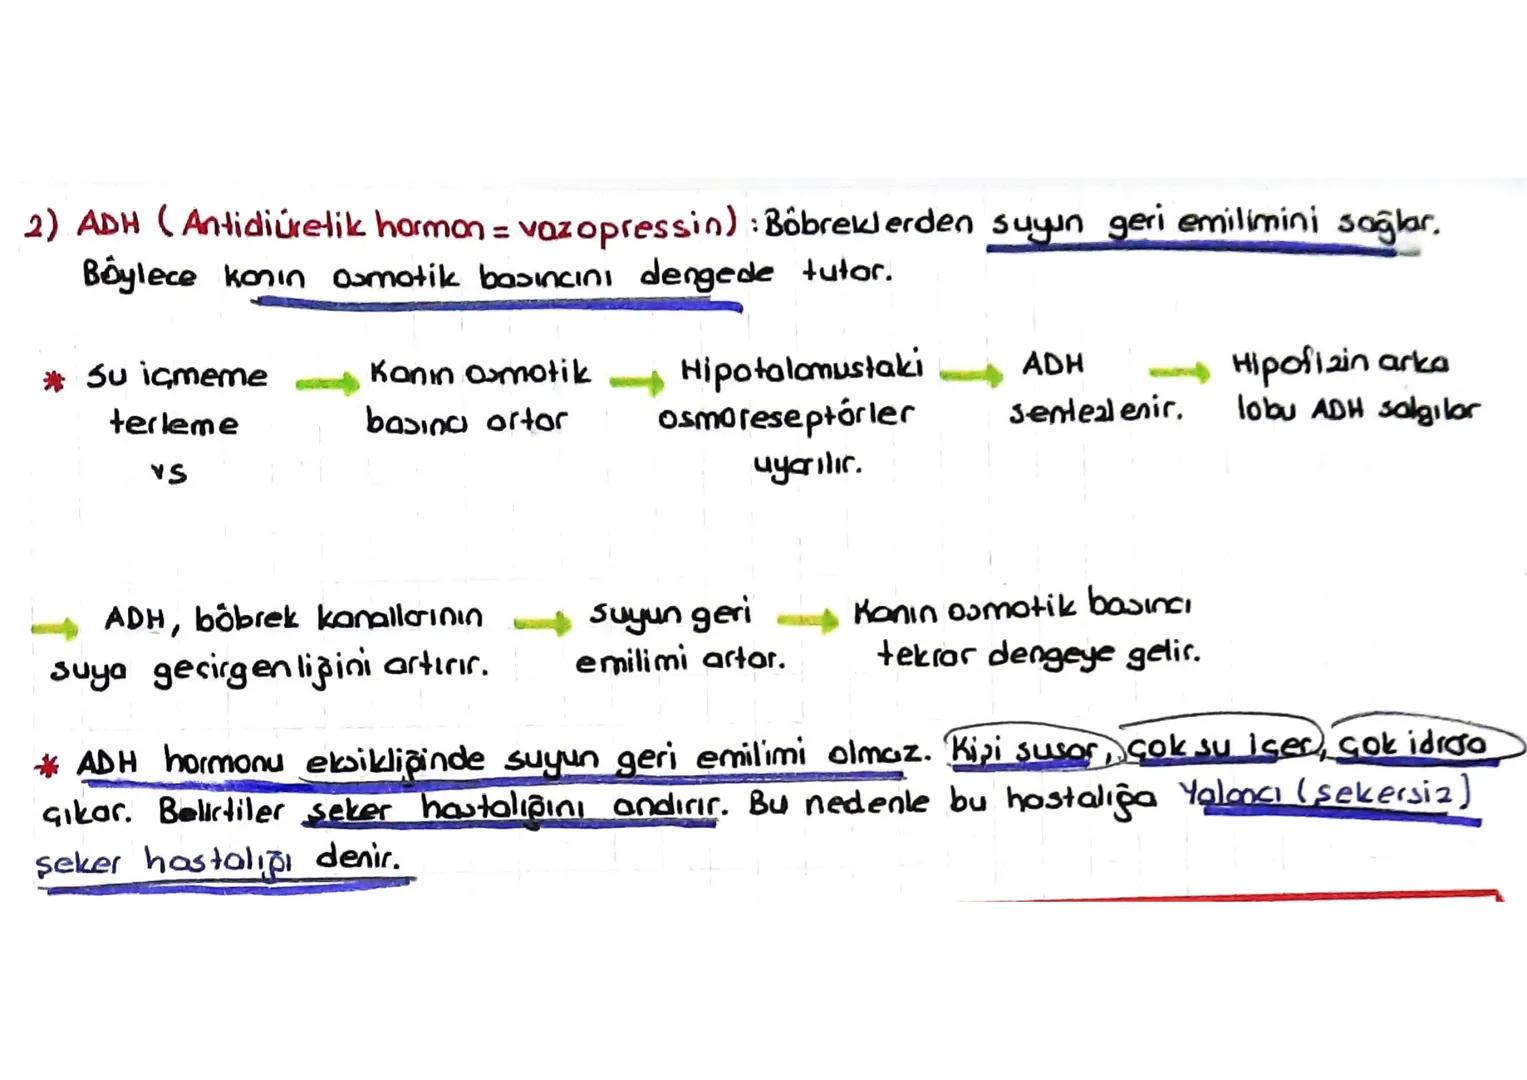 2) ADH (Antidiüretik hormon = vazopressin) : Böbreklerden suyun geri emilimini sağlar.
Böylece kanın osmotik basıncını dengede tutar.
* Su içmeme → Kanın osmotik → Hipotalamustaki → ADH → Hipofizin arka
terleme basıncı artar osmoreseptörler sentezlenir. lobu ADH salgılar
vs uyarılır.
→ ADH, böbrek kanallarının → suyun geri → Kanın osmotik basıncı
suya geçirgenliğini artırır. emilimi artar. tekrar dengeye gelir.
* ADH hormonu eksikliğinde suyun geri emilimi olmaz. Kişi susar, çok su içer, çok idrara
çıkar. Belirtiler şeker hastalığını andırır. Bu nedenle bu hastalığa Yalancı (şekersiz)
şeker hastalığı denir.